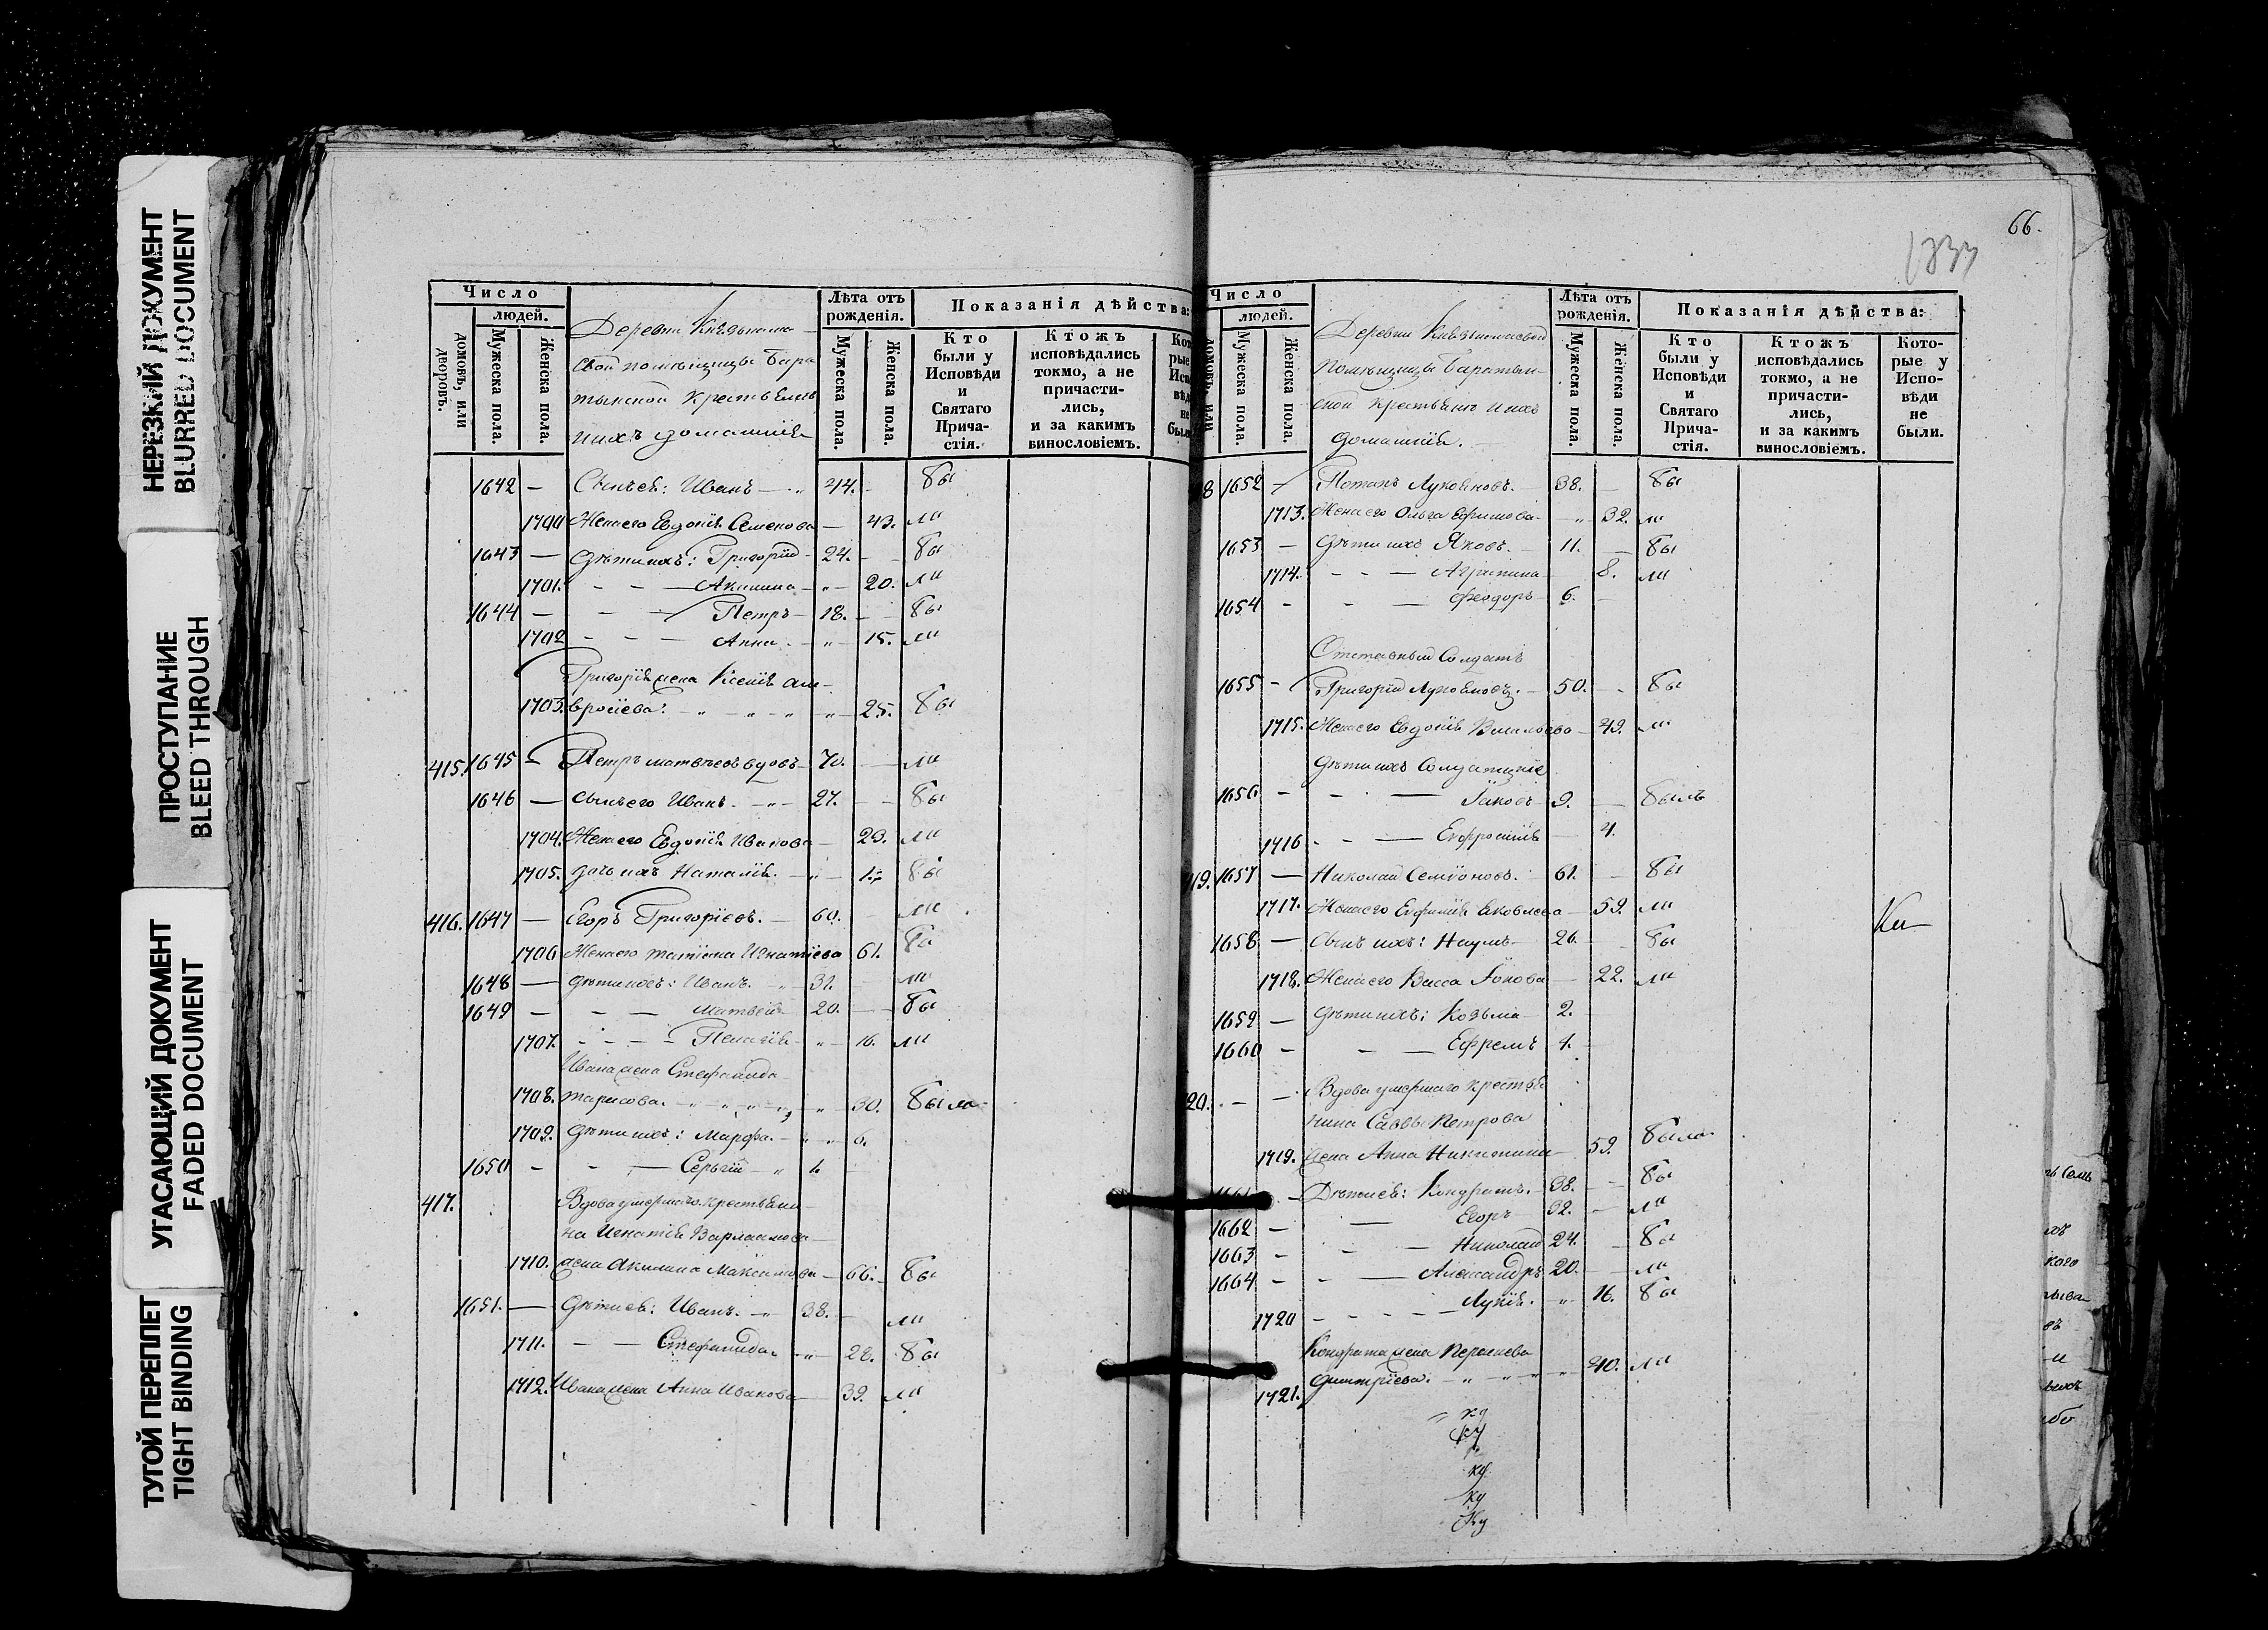 НЕРЕЗКИЙ ДОКУМЕНТ
BLURRED DOCUMENT
ПРОСТУПАНИЕ
BLEED THROUGH
УГАСАЮЩИЙ ДОКУМЕНТ
FADED DOCUMENT
ТУГОЙ ПЕРЕПЛЕТ
TIGHT BINDING
Число
людей.
домовъ, или дворовъ.
Мужеска пола.
Женска пола.
Деревни
помѣщицы Бара
тынской крестьяне
и ихъ домашнія
Лѣта отъ рожденія.
Мужеска пола.
Женска пола.
Показанія дѣйства:
Кто были у Исповѣди и Святаго Прича-стія.
Ктожъ исповѣдались токмо, а не причасти-лись, и за какимъ винословіемъ.
1642 — Сынъ ея: Иванъ — 44. — бы
1700 Жена его Евдокія Семенова — 43. ли
1643 — Дѣти ихъ: Григорій — 24. — бы
1701. — Акилина — 20. ли
1644 — Петръ — 18. — бы
1702 — Анна — 15. ли
Григорія жена Ксенія Ам-
1703. вросіева. — 25. бы
415. 1645 — Петръ Матвѣевъ вдовъ — 70. — ли
1646 — Сынъ его Иванъ. — 27. — бы
1704. Жена его Евдокія Иванова — 23. ли
1705. Дочь ихъ Наталія. — 1. бы
416. 1647 — Егоръ Григоріевъ. — 60. — ли
1706 Жена его Татіана Игнатіева 61. бы
1648 — Дѣти ихъ: Иванъ. — 31. ли
1649 — Матвей — 20. — бы
1707. — Пелагія — 16. ли
Ивана жена Стефанида
1708. — 30. была
1709. Дѣти ихъ: Марфа. — 6.
1650 — Сергій — 1.
417. Вдова умершаго крестьяни-
на Игнатія Варламова
1710. жена Акилина Максимова — 66. — бы
1651. — Дѣти ея: Иванъ. — 38. — ли
1711. — Стефанида — 22. бы
1712. Ивана жена Анна Иванова — 39. ли
66.
1833
Число
людей.
Мужеска пола.
Женска пола.
Деревни
Помѣщицы Баратын-
ской крестьяне и ихъ
домашнія.
Лѣта отъ рожденія.
Мужеска пола.
Женска пола.
Показанія дѣйства:
Кто были у Исповѣди и Святаго Прича-стія.
Ктожъ исповѣдались токмо, а не причасти-лись, и за какимъ винословіемъ.
Кото-рые у Испо-вѣди не были.
8 1652 — Потапъ Лукьяновъ. — 38. — бы
1713. Жена его Ольга Ефимова — 32. ли
1653 — Дѣти ихъ Яковъ. — 11. — бы
1714. — Агрипина — 8. ли
1654 — Феодоръ — 6. —
Отставный Солдатъ
1655 — Григорій Лукьяновъ. — 50. — бы
1715. Жена его Евдокія — 49. ли
Дѣти ихъ Солдатскіе
1656 — Іаковъ — 9. — былъ
1716 — Евфросинія — 4.
19. 1657 — Николай Семіоновъ. — 61. — бы
1717. Жена его Евфимія Яковлева — 59. ли
Ки
1658 — Сынъ ихъ: Наумъ — 26. — бы
1718. Жена его Васса — 22. ли
1659 — Дѣти ихъ: Козьма — 2.
1660 — Ефремъ 1.
20. — Вдова умершаго крестья
нина Саввы Петрова
1719. жена Анна Никитина — 59. была
— Дѣти ея: Кондратъ. — 38. — бы
1662 — Егоръ — 32. — ли
1663 — Николай 24. — бы
1664 — Александръ 20. — ли
1720 — Лукія. — 16. бы
Кондрата жена
1721. Димитріева. — 40. ли